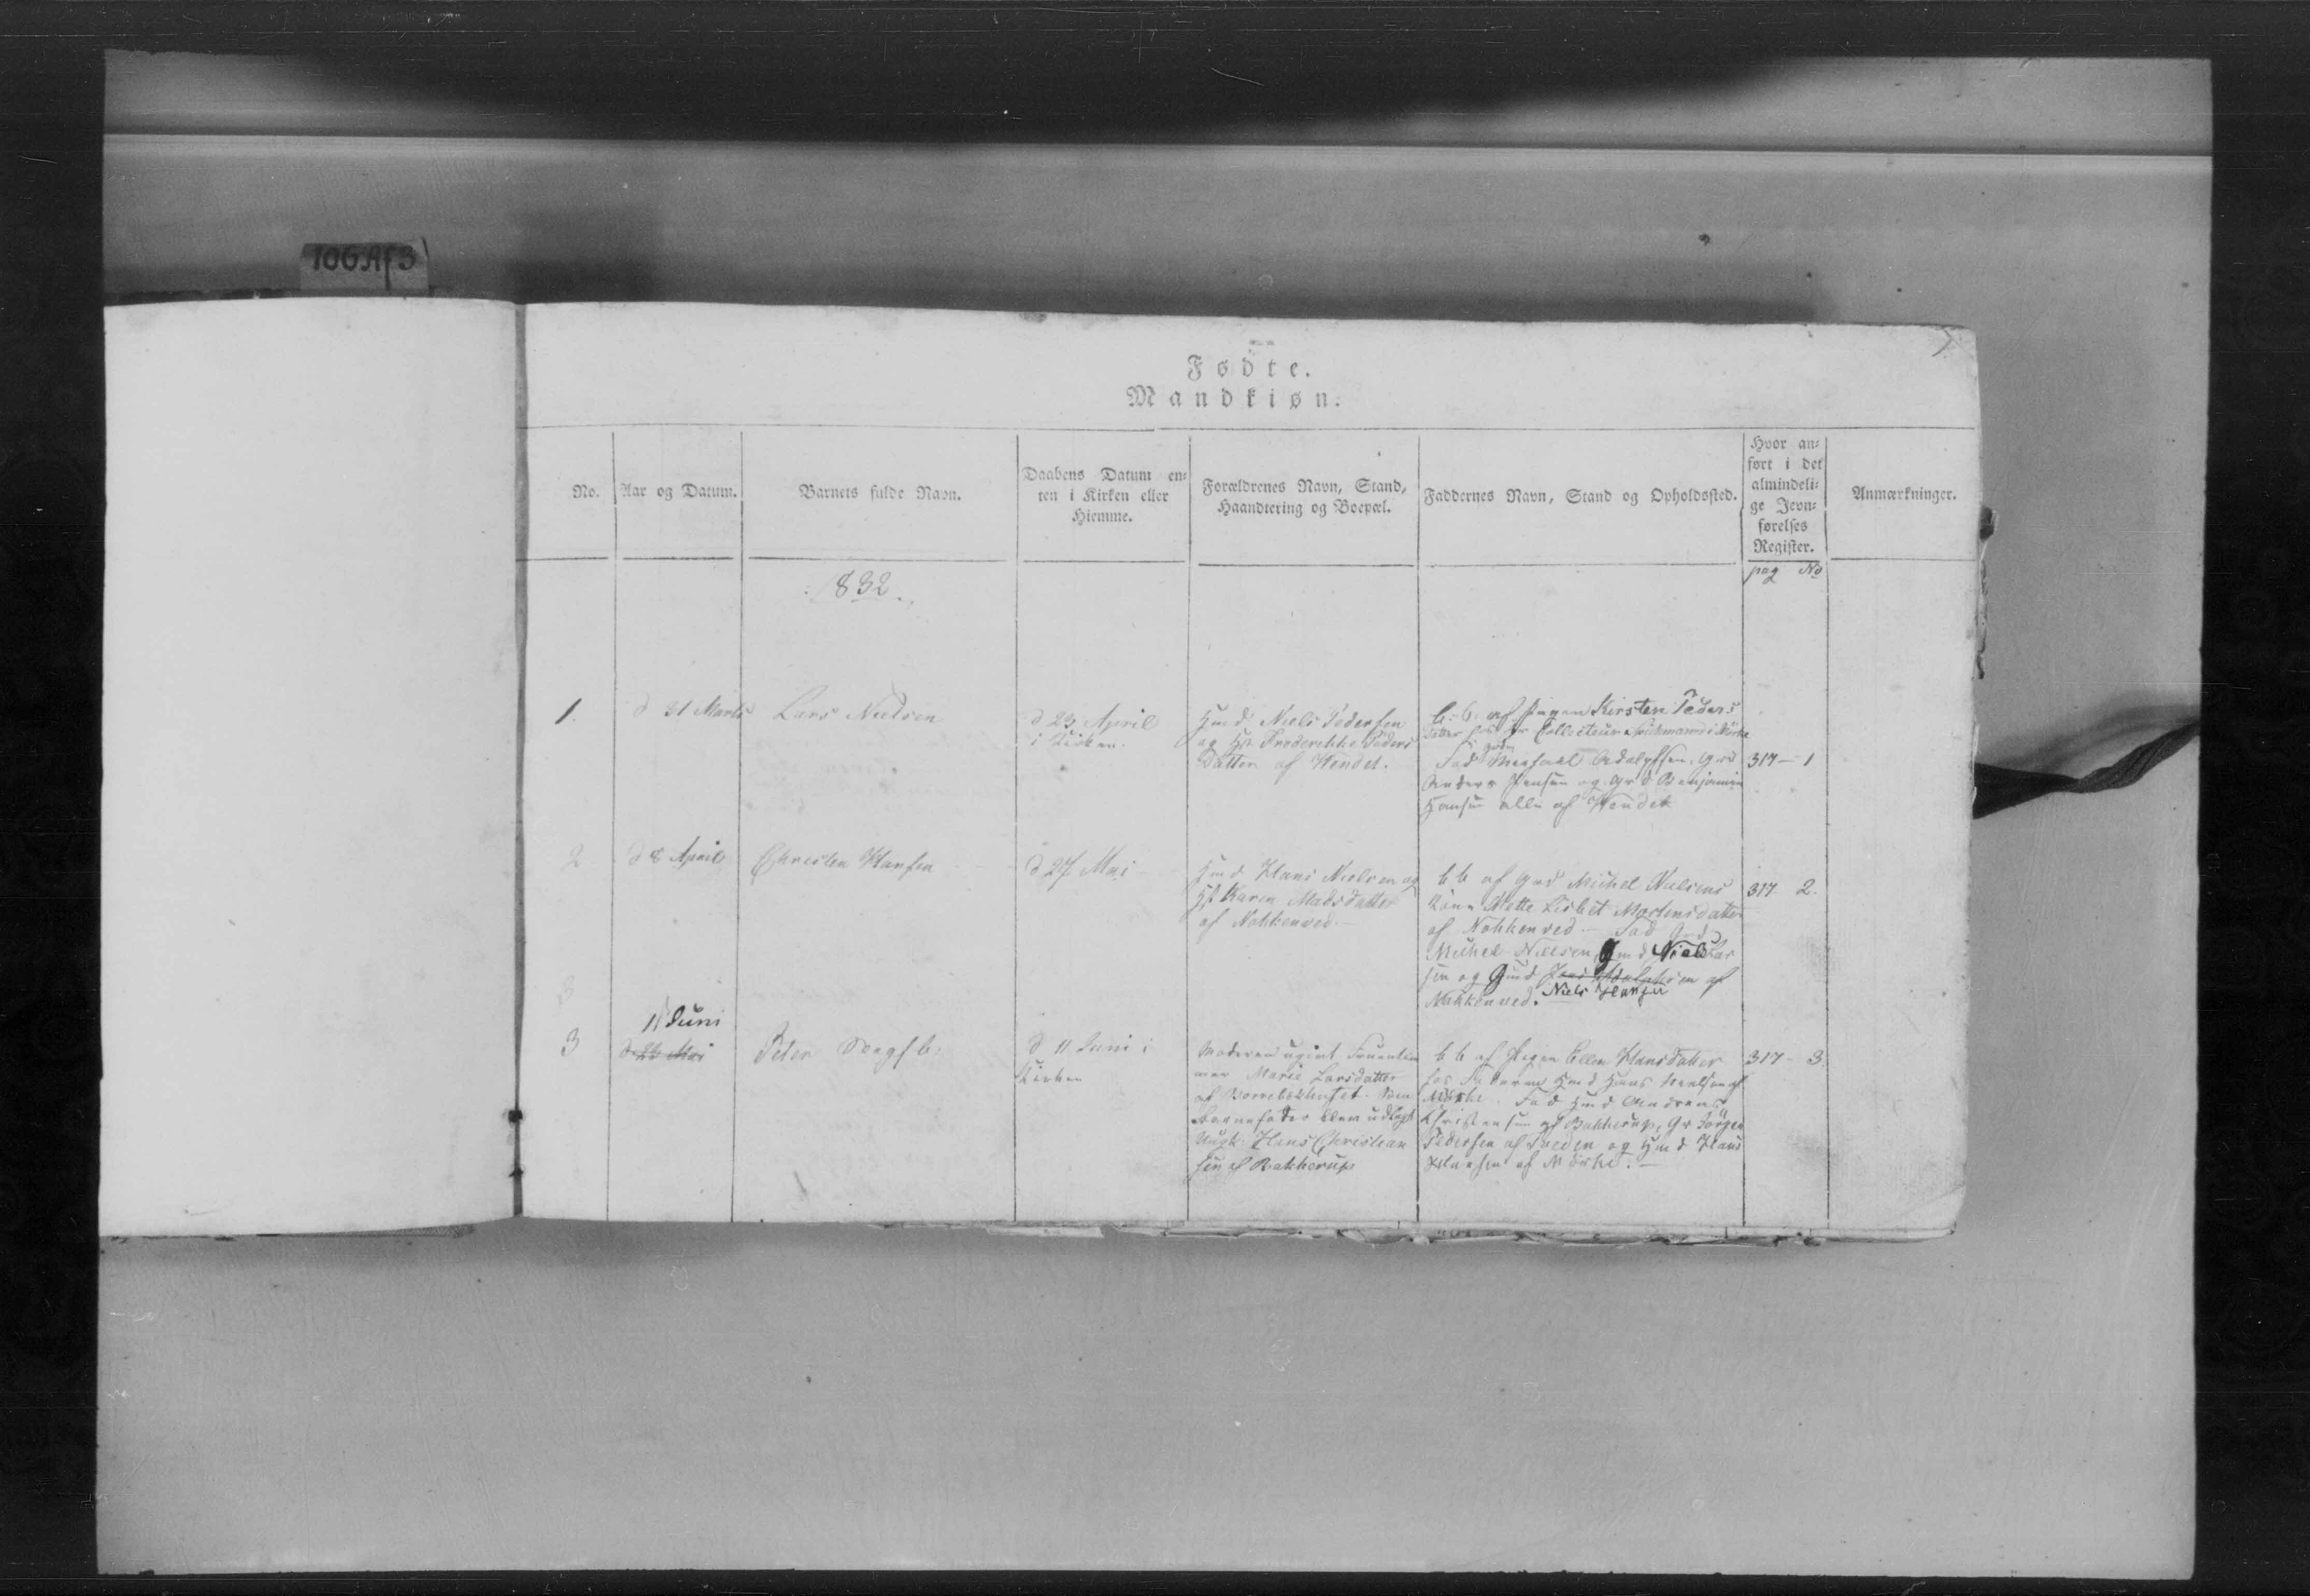 106Af3
7
Fødte.
Mandkiøn.
No.
Aar og Datum.
Barnets fulde Navn.
Daabens Datum en-
ten i Kirken eller
Hiemme.
Forældrenes Navn, Stand,
Haandtering og Boepæl.
Faddernes Navn, Stand og Opholdssted.
Hvor an-
ført i det
almindeli-
ge Jevn-
førelses
Register.
Anmærkninger.
pag No
1832.
1.
d 31 Marts
Lars Nielsen
d 23 April
i Kirken.
Hmd Niels Pedersen
og Hst Frederikke Peders
Datter af Vendet.
b: b: af Pigen Kirsten Peders
datter hos Hr Collecteur i Mörke
Fad Adolphsen, Grd
Anders Jensen og Grd Benjamin
Hansen alle af Vendet
317 — 1
2
d 8 April
Christen Hansen
d 27 Mai
Hmd Hans Nielsen og
Hst Karen Madsdatter
af Nokkenved. —
bb af Grd Mikel Nielsens
Kone Mette Lisbet Mortensdatter
af Nokkenved — Fad Grd
Mikel Nielsen Gmd Niels Lar
sen og Gmd Adolphsen af
Nokkenved. Niels Hansen
317 2.
3
11 Juni
3
d 26 Mai
Peter
d 11 Juni i
Kirken
Moderen ugivt Fruentim
mer Marie Larsdatter
af Som
Barnefader blev udlagt
Ungk: Hans Christian
sen af Bakkerup
bb af Pigen Ellen Hansdatter
hos Faderen Hmd Hans af
Mörke. Fad Hmd Andreas
Christensen af Bakkerup, Gr Jörgen
Pedersen af og Hmd Hans
af Mörke. —
317 — 3.